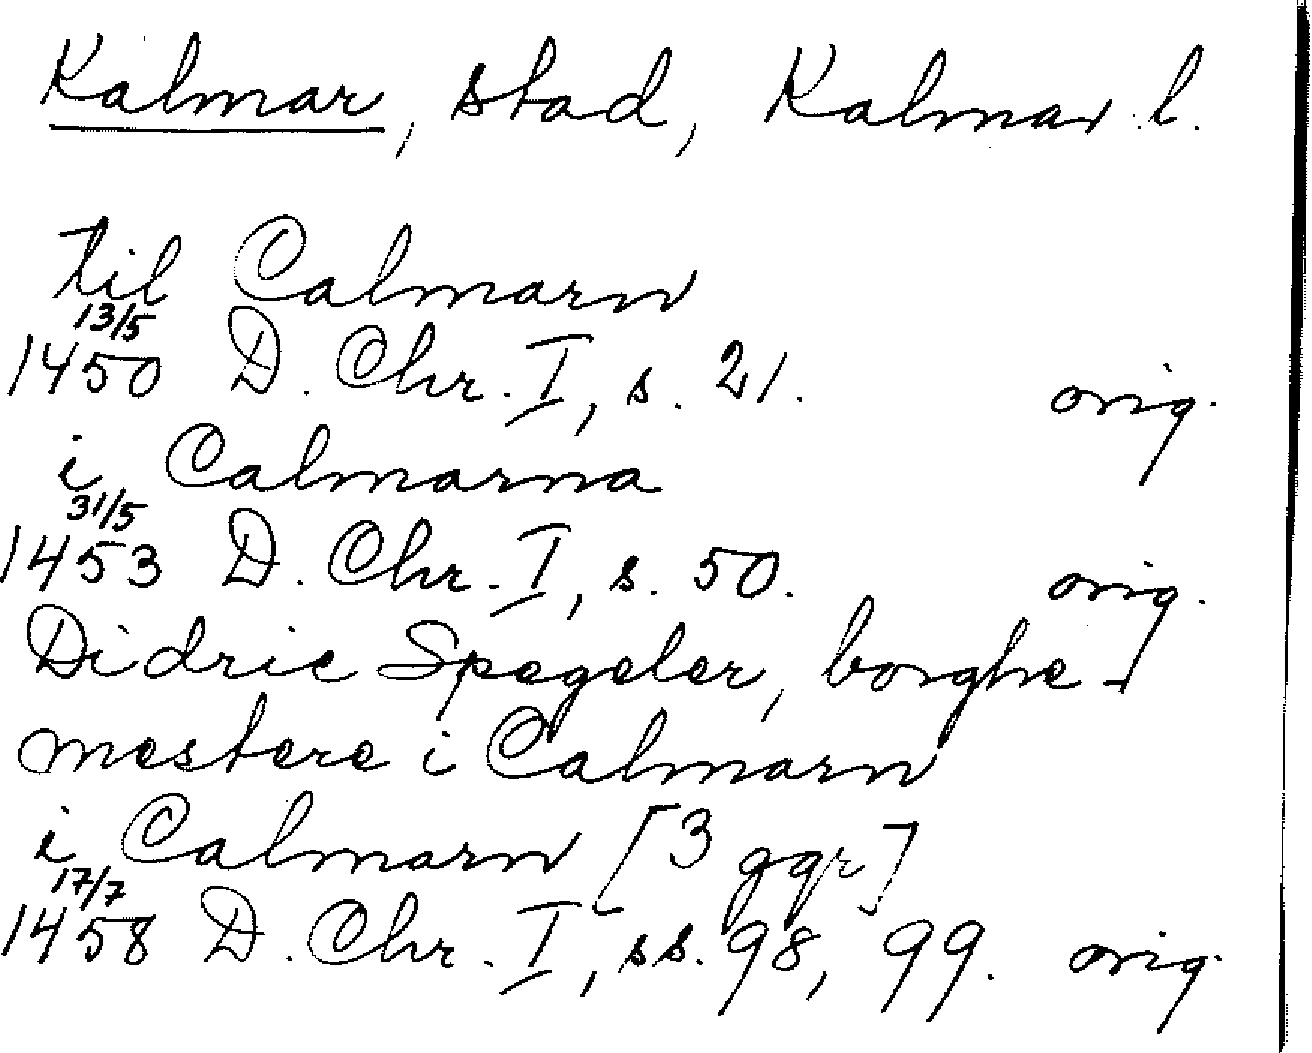 Kalmar, stad, Kalmar l.
til Calmarn
13/5
1450 D. Chr. I, s. 21. orig.
i Calmarna
31/5
1453 D. Chr. I, s. 50. orig.
Didric Spegeler, borghe-
mestere i Calmarn
i Calmarn [3 ggr]
17/7
1458 D. Chr. I, ss. 98, 99. orig.